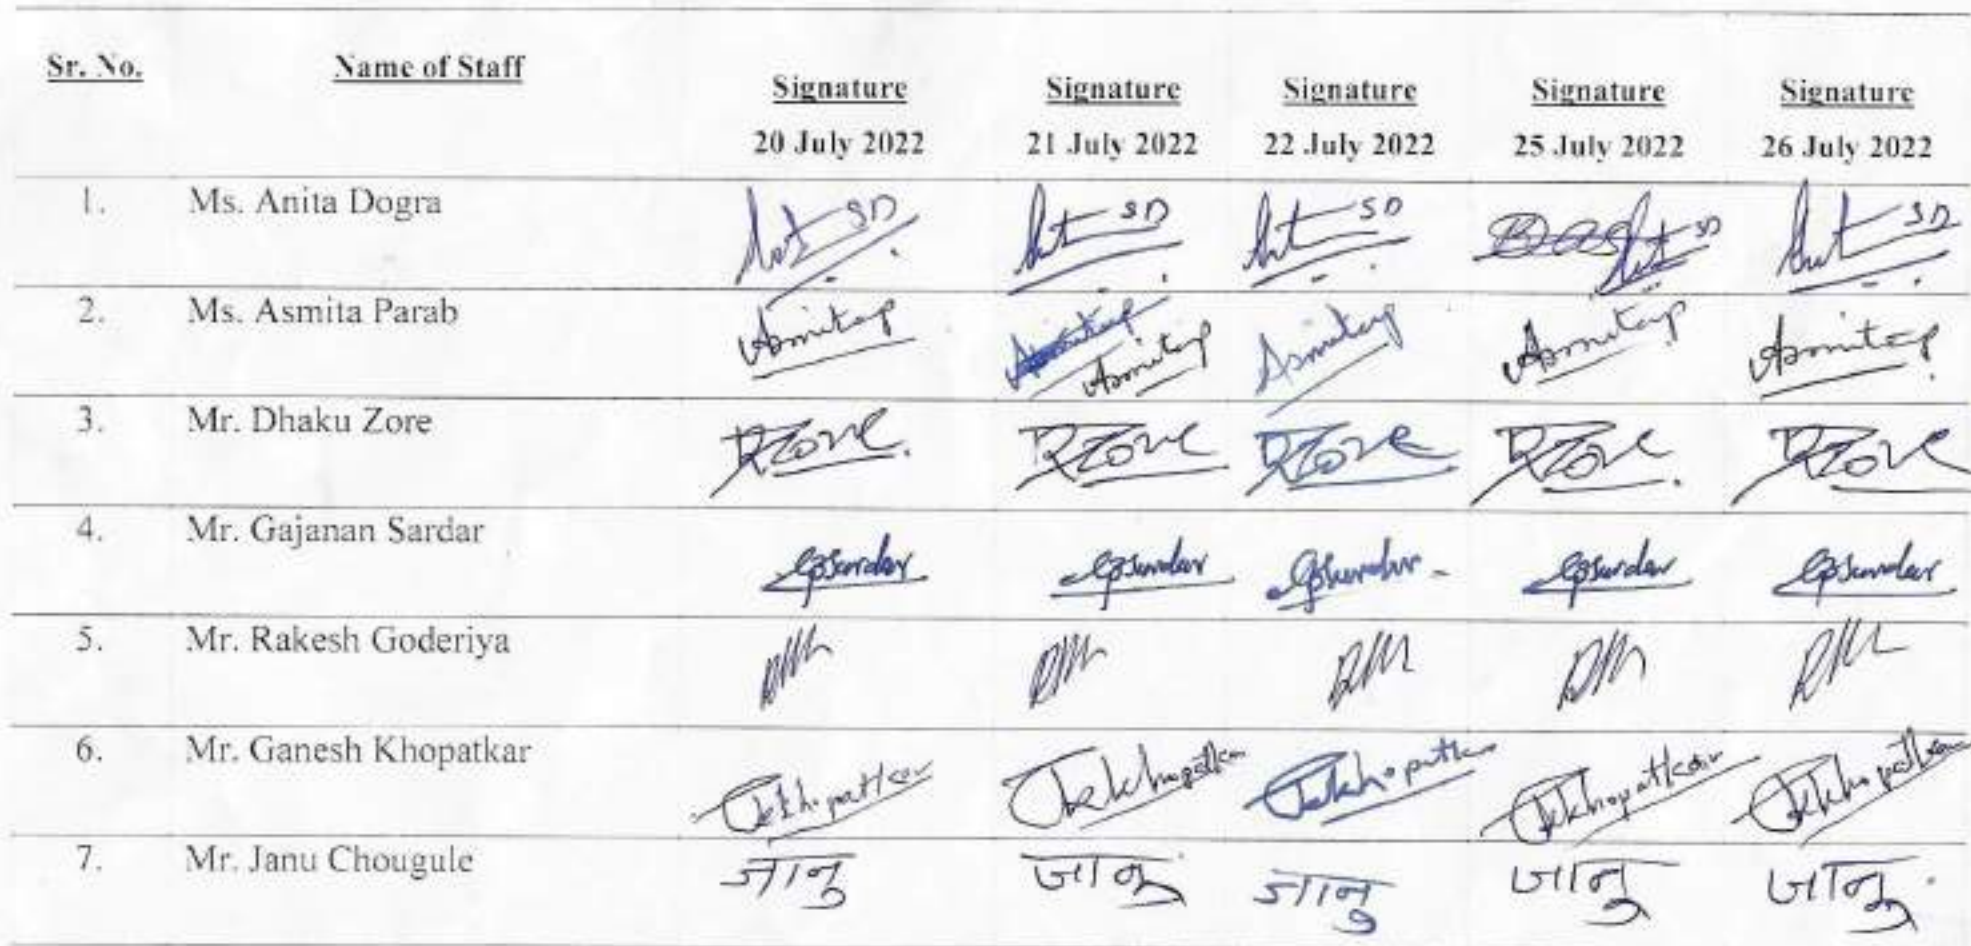 Sr. No. Name of Staff Signature Signature Signature Signature Signature
20 July 2022 21 July 2022 22 July 2022 25 July 2022 26 July 2022
1. Ms. Anita Dogra SD SD SD SD SD
2. Ms. Asmita Parab Asmitap Asmitap Asmitap Asmitap Asmitap
3. Mr. Dhaku Zore DZore DZore DZore DZore DZore
4. Mr. Gajanan Sardar GSardar GSardar GSardar GSardar GSardar
5. Mr. Rakesh Goderiya
6. Mr. Ganesh Khopatkar Khopatkar Khopatkar Khopatkar Khopatkar Khopatkar
7. Mr. Janu Chougule जानु जानु जानु जानु जानु